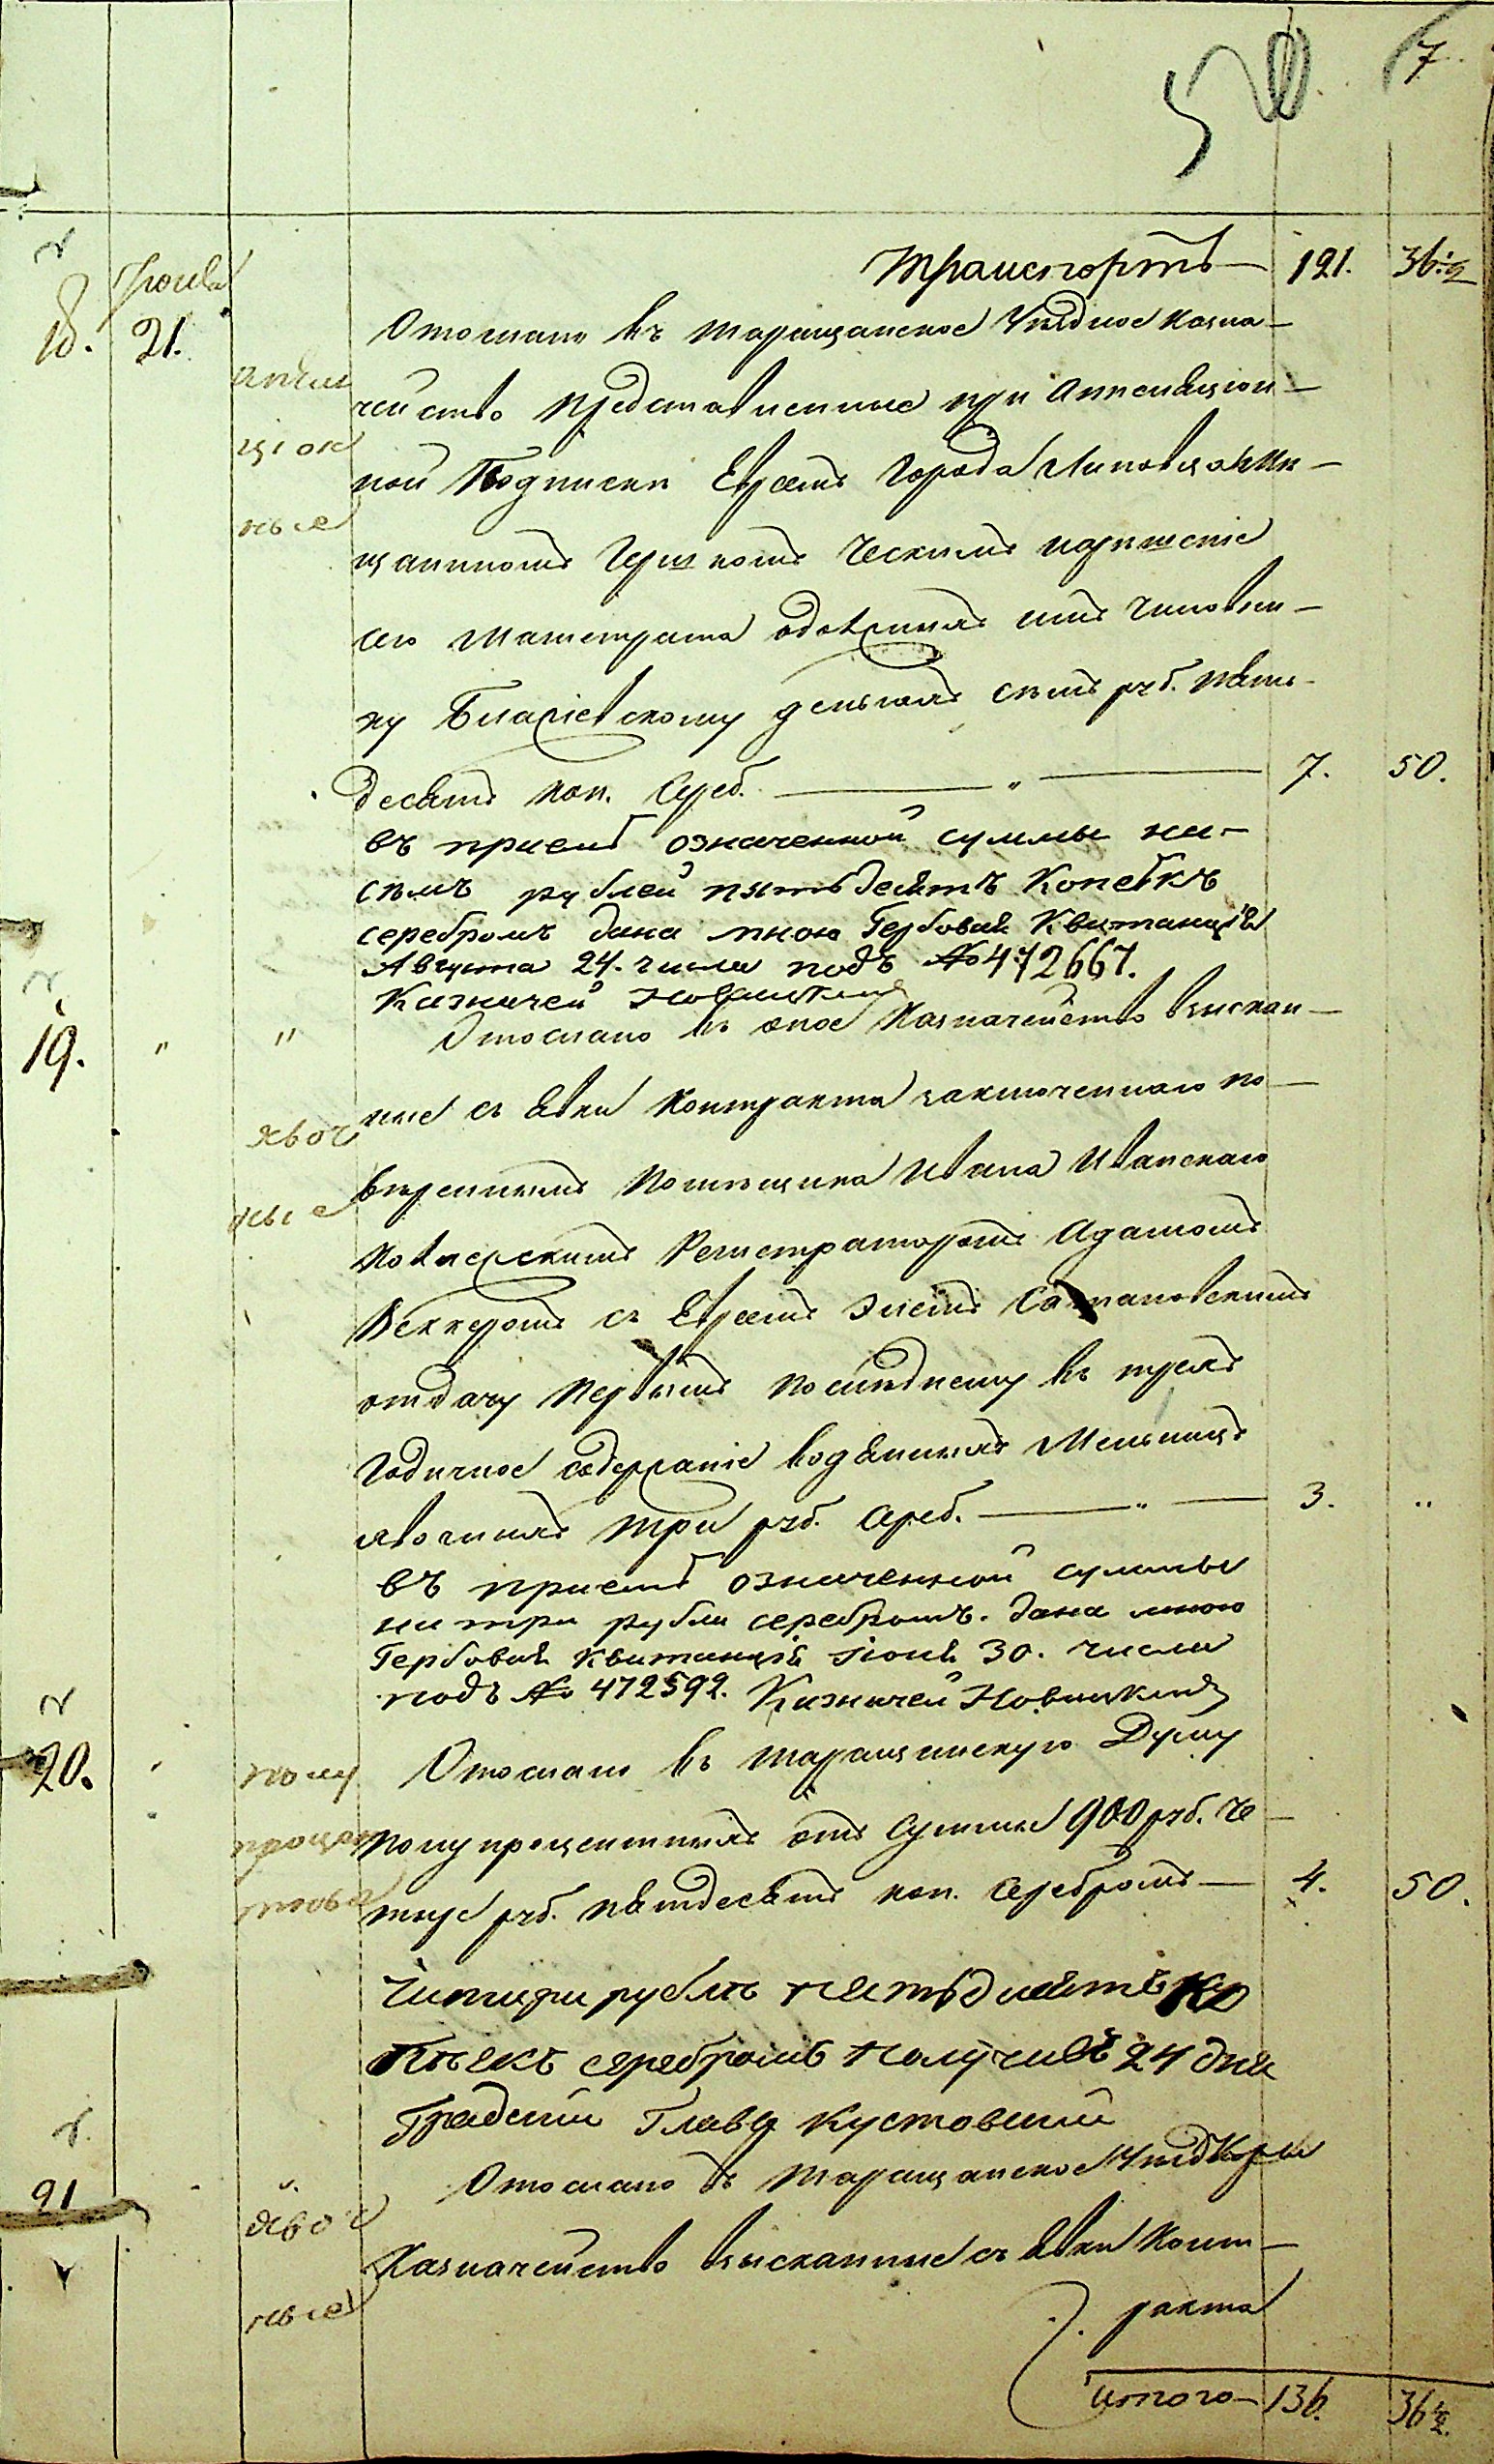 7.
Транспортъ — 121. 36 1/2
18. Іюня 21. апеля
ціон
ные
Отослано въ Таращанское Уѣздное Казна-
чейство представленные при Аппеляціон-
ной Подписки Евреемъ города Липовца Мѣ-
щаниномъ Гершкомъ
сего Магистрата чиновни-
ку деньгами семь руб. пять-
десятъ коп. Сереб. — " — 7. 50.
въ приемѣ означенной суммы на-
семъ рублей пятьдесятъ Копеѣкъ
серебромъ дана мною Гербовая Квитанція
Августа 24. числа подъ № 472667.
Казначей Новицкий
19. " "
явоч
ные
Отослано въ оное Казначейство взыскан-
ные съ явки Контракта заключеннаго по-
вѣреннымъ Помѣщика Ивана Иванскаго
Коллежскимъ Регистраторомъ Адамомъ
съ Евреемъ
отдачу первымъ последнему въ трехъ
Годичное содержаніе водяныхъ Мельницъ
явочныхъ три руб. Сереб. — " — 3. "
въ приемѣ означенной суммы
на три рубли серебромъ. дана мною
Гербовая квитанція Іюня 30. числа
подъ № 472592. Казначей Новицкий
20. полу
процен
тные
Отослано въ Таращанскую Думу
полупроцентныхъ отъ Суммы 900 руб. че-
тыре руб. пятдесятъ коп. Серебромъ — 4. 50.
Читири рубль пятьдисятъ ко
пѣекъ серебромъ получилъ 24 дня
Градский Глава Кустовский
21 явоч
ные
Отослано въ Таращанское Уѣзд
Казначейство взысканные съ явки Конт-
ракта
Итого — 136. 36 1/2.